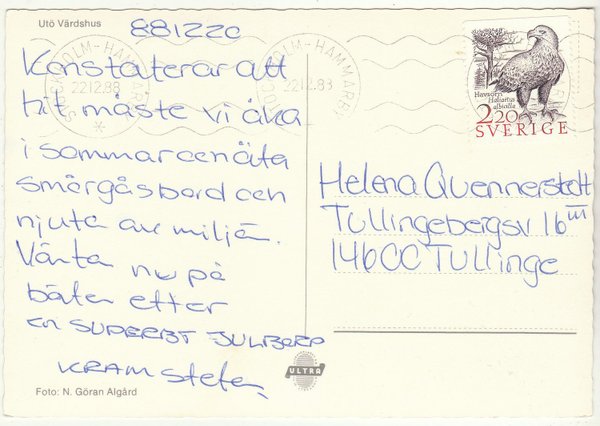 Utö Värdshus
881220
Konstaterar att
hit måste vi åka
i sommar och äta
smörgåsbord och
njuta av miljön.
Väntar nu på
båten efter
en SUPERBT JULBORD
KRAM Stefan
Foto: N. Göran Algård
ULTRA
STOCKHOLM-HAMMARBY
22.12.88
STOCKHOLM-HAMMARBY
22.12.88
Havsörn
Haliaetus
albicilla
2.20
SVERIGE
Helena Quennerstedt
Tullingebergsv 16 III
146 00 Tullinge